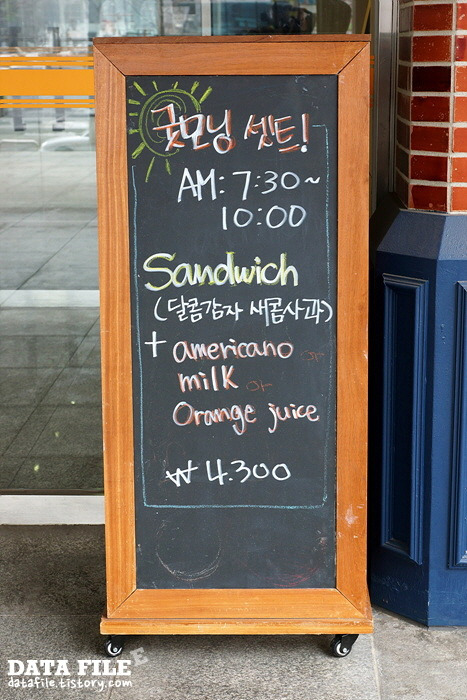 굿모닝 셋트!
AM: 7:30~
10:00
Sandwich
(달콤감자 새콤사과)
+ americano or
milk or
Orange juice
₩ 4.300
DATA FILE
datafile.tistory.com